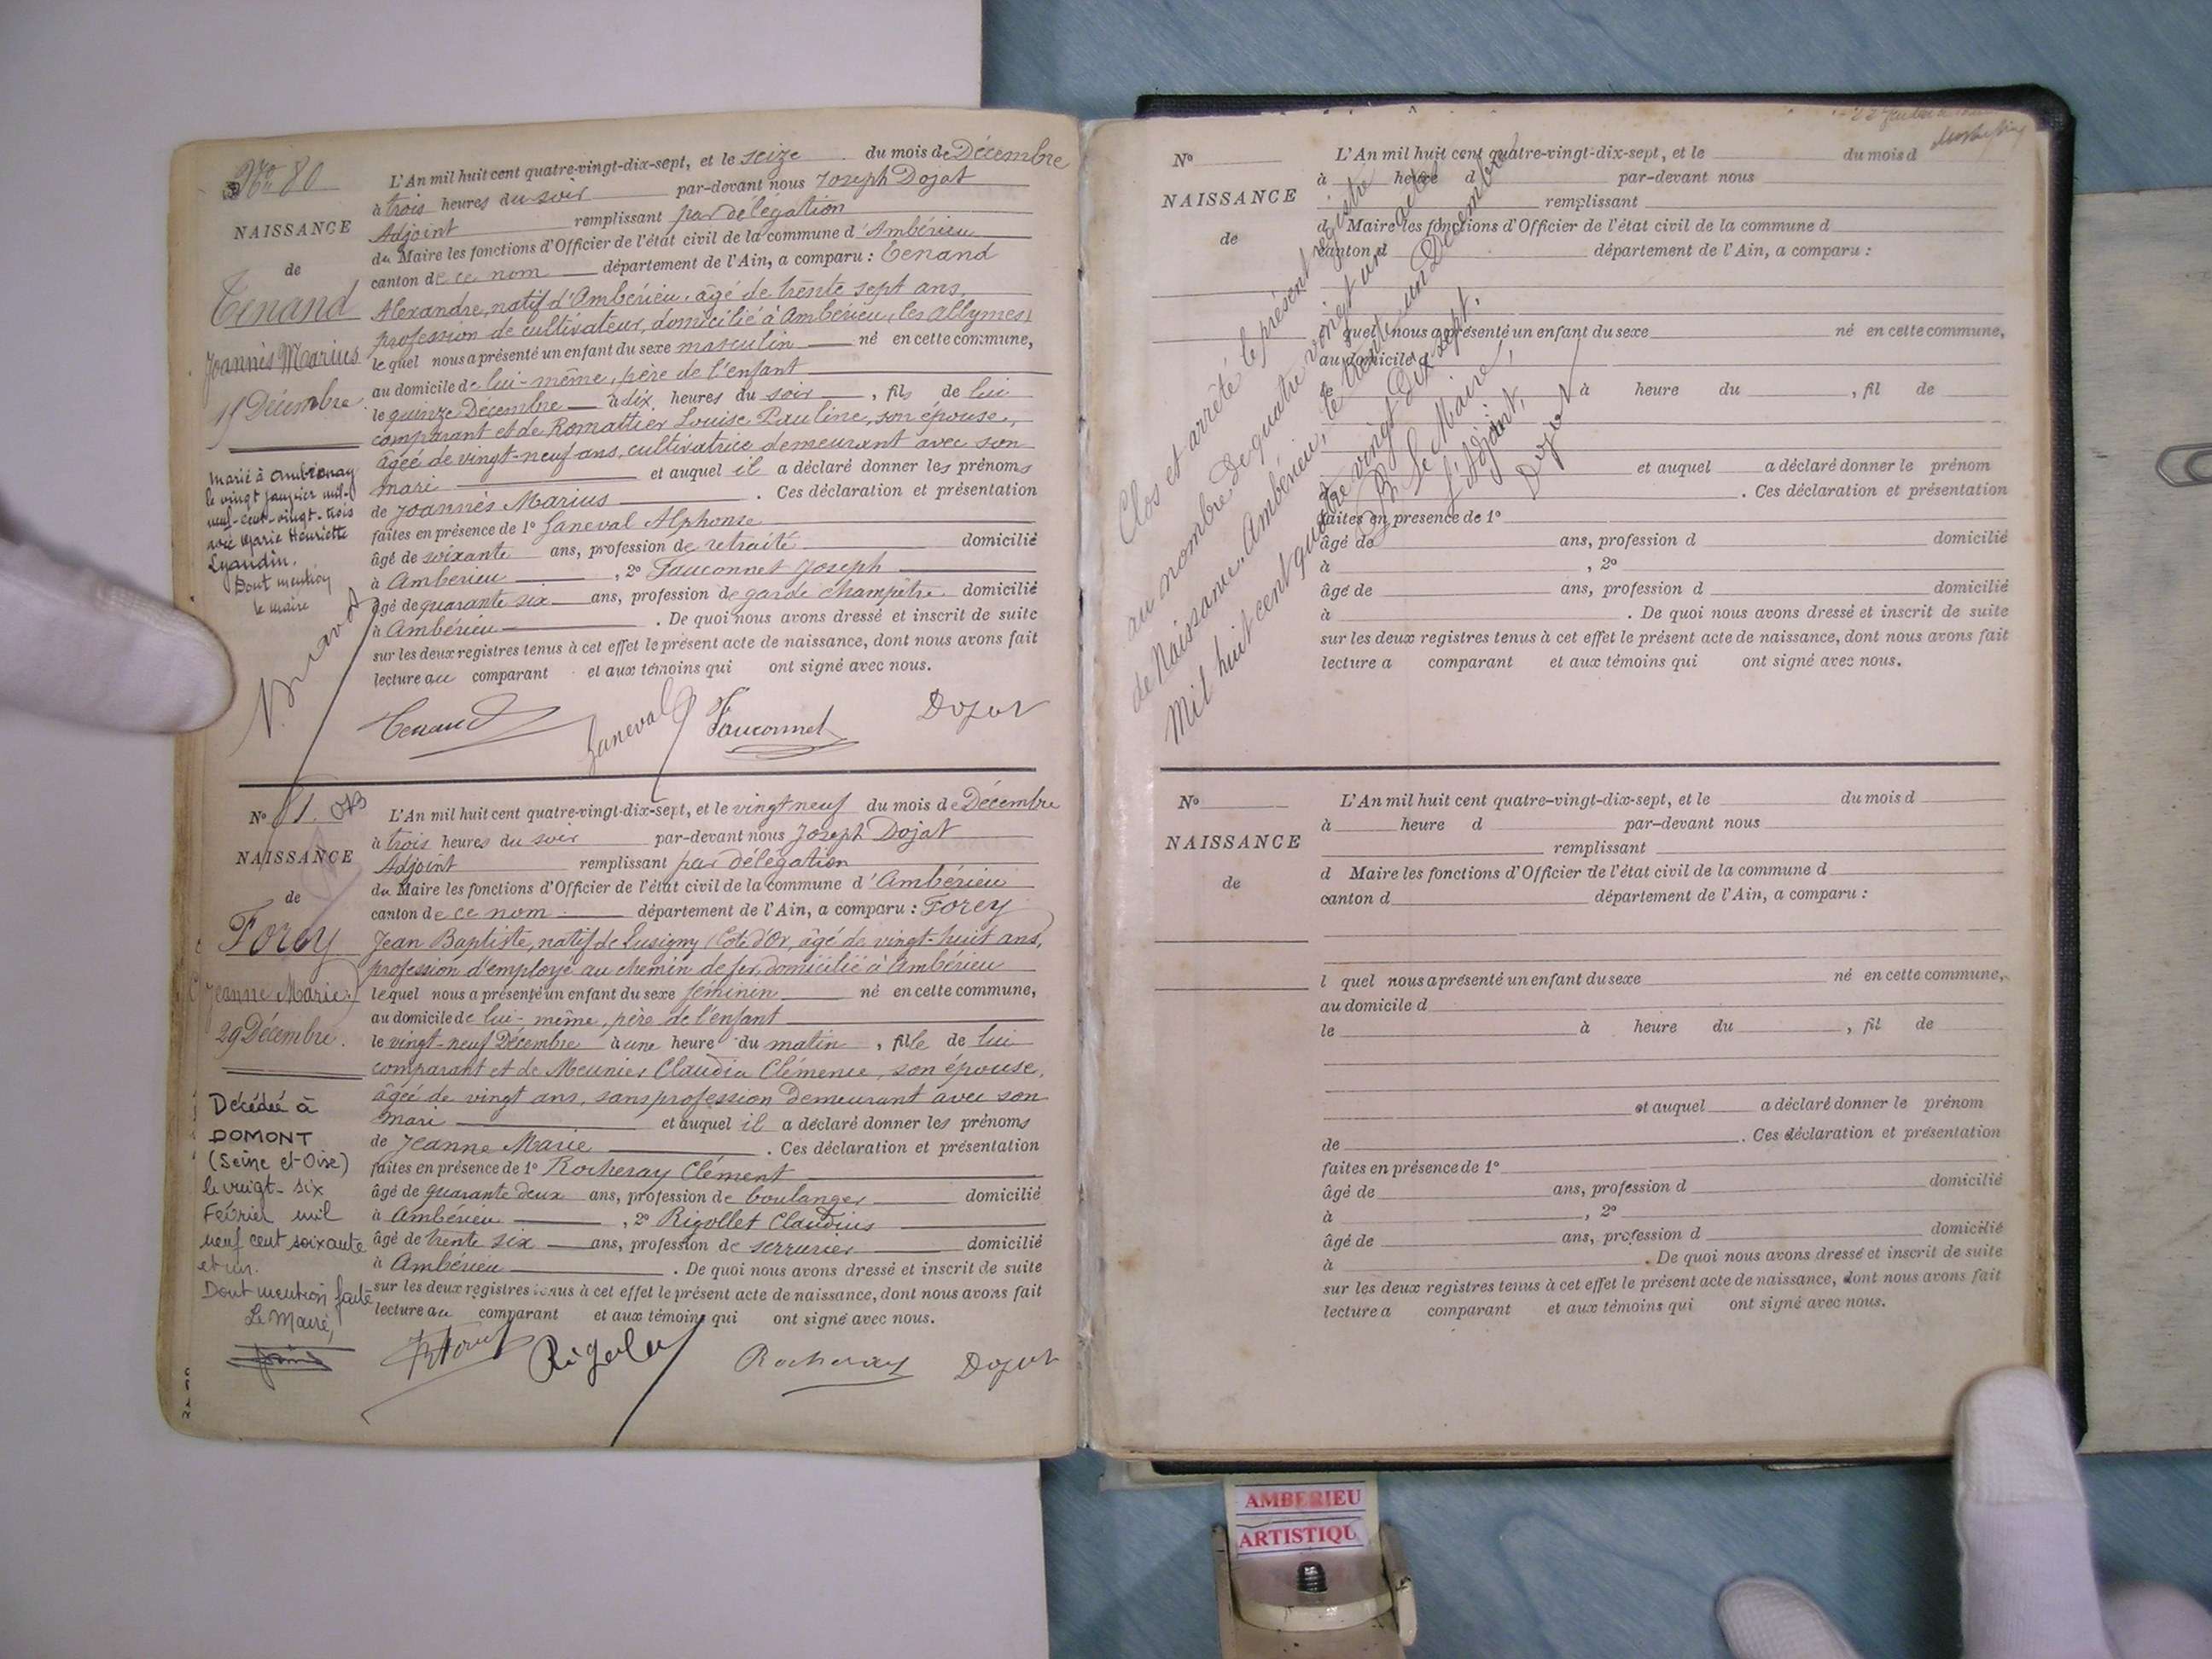 No 80
NAISSANCE
de
Tenand
Joannès Marius
15 Décembre
Marié à Ambronay
le vingt janvier mil-
neuf-cent-vingt-trois
avec Marie Henriette
Dont mention
le maire
L'An mil huit cent quatre-vingt-dix-sept, et le seize du mois de Décembre
à trois heures du soir par-devant nous Joseph Dojat
Adjoint remplissant par délégation
du Maire les fonctions d'Officier de l'état civil de la commune d'Ambérieu
canton de ce nom département de l'Ain, a comparu : Tenand
Alexandre, natif d'Ambérieu, âgé de trente sept ans,
profession de cultivateur, domicilié à Ambérieu, (les Allymes)
lequel nous a présenté un enfant du sexe masculin né en cette commune,
au domicile de lui-même, père de l'enfant
le quinze Décembre à dix heures du soir, fils de lui
comparant et de Romattier Louise Pauline, son épouse,
âgée de vingt-neuf ans, cultivatrice demeurant avec son
mari et auquel il a déclaré donner les prénoms
de Joannès Marius. Ces déclaration et présentation
faites en présence de 1° Janeval Alphonse
âgé de soixante ans, profession de retraité domicilié
à Ambérieu, 2° Fauconnet Joseph
âgé de quarante six ans, profession de garde champêtre domicilié
à Ambérieu. De quoi nous avons dressé et inscrit de suite
sur les deux registres tenus à cet effet le présent acte de naissance, dont nous avons fait
lecture au comparant et aux témoins qui ont signé avec nous.
Tenand Janeval Fauconnet Dojat
No 81
NAISSANCE
de
Forey
Jeanne Marie
29 Décembre.
Décédée à
DOMONT
(Seine et Oise)
le vingt-six
Février mil
neuf cent soixante
et un.
Dont mention faite
Le Maire,
L'An mil huit cent quatre-vingt-dix-sept, et le vingt neuf du mois de Décembre
à trois heures du soir par-devant nous Joseph Dojat
Adjoint remplissant par délégation
du Maire les fonctions d'Officier de l'état civil de la commune d'Ambérieu
canton de ce nom département de l'Ain, a comparu : Forey
Jean Baptiste, natif de Lusigny (Côte d'Or, âgé de vingt-huit ans,
profession d'employé au chemin de fer, domicilié à Ambérieu
lequel nous a présenté un enfant du sexe féminin né en cette commune,
au domicile de lui-même, père de l'enfant
le vingt-neuf Décembre à une heure du matin, fille de lui
comparant et de Meunier Claudia Clémence, son épouse,
âgée de vingt ans, sans profession demeurant avec son
mari et auquel il a déclaré donner les prénoms
de Jeanne Marie. Ces déclaration et présentation
faites en présence de 1° Rocheray Clément
âgé de quarante deux ans, profession de boulanger domicilié
à Ambérieu, 2° Rigollet Claudius
âgé de trente six ans, profession de serrurier domicilié
à Ambérieu. De quoi nous avons dressé et inscrit de suite
sur les deux registres tenus à cet effet le présent acte de naissance, dont nous avons fait
lecture au comparant et aux témoins qui ont signé avec nous.
Rocheray Dojat
No
NAISSANCE
de
L'An mil huit cent quatre-vingt-dix-sept, et le du mois d
à heure d par-devant nous
remplissant
d Maire les fonctions d'Officier de l'état civil de la commune d
canton d département de l'Ain, a comparu :
quel nous a présenté un enfant du sexe né en cette commune,
au domicile d
le à heure du , fil de
et auquel a déclaré donner le prénom
de . Ces déclaration et présentation
faites en présence de 1°
âgé de ans, profession d domicilié
à , 2°
âgé de ans, profession d domicilié
à . De quoi nous avons dressé et inscrit de suite
sur les deux registres tenus à cet effet le présent acte de naissance, dont nous avons fait
lecture a comparant et aux témoins qui ont signé avec nous.
Clos et arrêté le présent registre
au nombre de quatre vingt un actes
de Naissance. Ambérieu, le trente un Décembre
Mil huit cent quatre vingt Dix sept.
Le Maire,
l'Adjoint,
Dojat
No
NAISSANCE
de
L'An mil huit cent quatre-vingt-dix-sept, et le du mois d
à heure d par-devant nous
remplissant
d Maire les fonctions d'Officier de l'état civil de la commune d
canton d département de l'Ain, a comparu :
l quel nous a présenté un enfant du sexe né en cette commune,
au domicile d
le à heure du , fil de
et auquel a déclaré donner le prénom
de . Ces déclaration et présentation
faites en présence de 1°
âgé de ans, profession d domicilié
à , 2°
âgé de ans, profession d domicilié
à . De quoi nous avons dressé et inscrit de suite
sur les deux registres tenus à cet effet le présent acte de naissance, dont nous avons fait
lecture a comparant et aux témoins qui ont signé avec nous.
AMBERIEU
ARTISTIQU